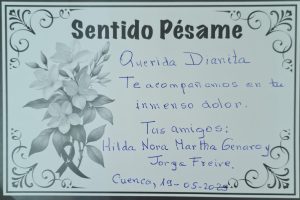 Sentido Pésame
Querida Dianita
Te acompañamos en tu
inmenso dolor.
Tus amigos:
Hilda Nora Martha Genaro y
Jorge Freire.
Cuenca, 19-05-2025